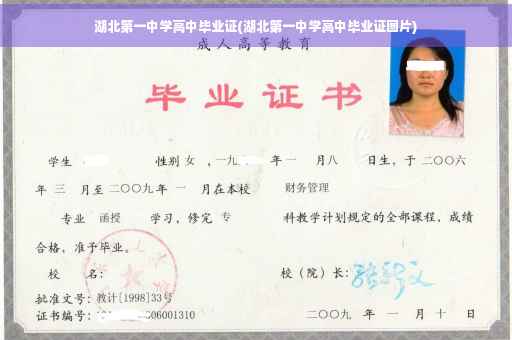 湖北第一中学高中毕业证(湖北第一中学高中毕业证图片)
成人高等教育
毕业证书
学生 性别 女 ,一九 年 一 月八 日生,于 二〇〇六
年 三 月至 二〇〇九 年 一 月在本校 财务管理
专业 函授 学习,修完 专 科教学计划规定的全部课程,成绩
合格,准予毕业。
校 名: 校(院)长:
批准文号:教计[1998]33号
证书编号: 06001310 二〇〇九 年 一 月 十 日